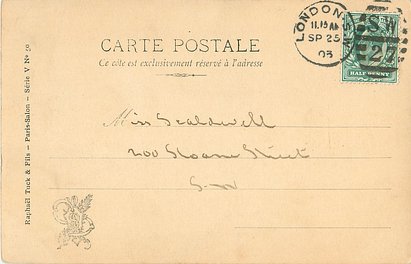 CARTE POSTALE
Ce côté est exclusivement réservé à l'adresse
LONDON S.W
11.15 AM
SP 25
03
S
22
HALFPENNY
Miss Scaldwell
200 Sloane Street
S.W
Raphaël Tuck & Fils — Paris-Salon — Série V Nº 50